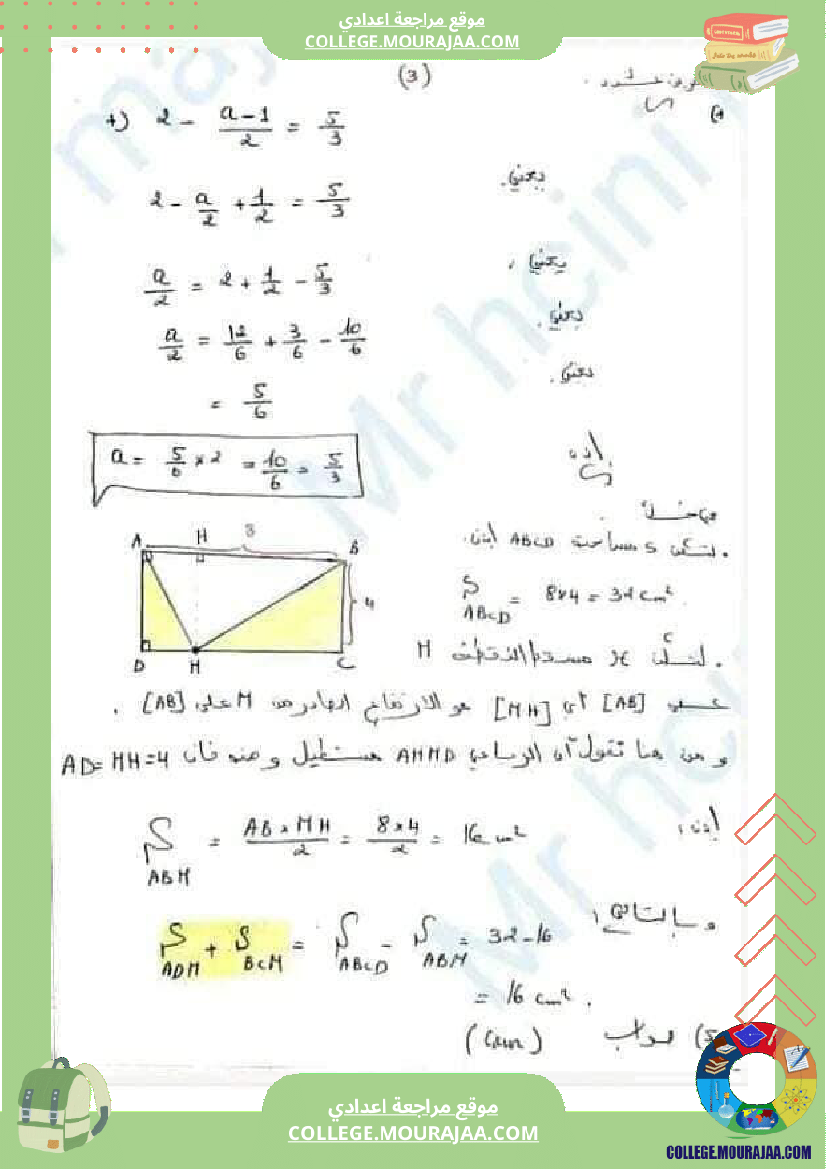 موقع مراجعة اعدادي
COLLEGE.MOURAJAA.COM
(3)
2 - (a-1)/2 = 5/3
يعني.
2 - a/2 + 1/2 = 5/3
يعني،
a/2 = 2 + 1/2 - 5/3
يعني.
a/2 = 12/6 + 3/6 - 10/6
يعني.
= 5/6
a = 5/6 × 2 = 10/6 = 5/3
A H 8 B
4
D M C
لتكن S مساحة ABCD إذن.
S ABCD = 8×4 = 32 cm²
H
[AB] أي [MH] هو الارتفاع الصادر من M على [AB].
و من هنا نقول أن الرباعي AHMD مستطيل و منه فإن AD=MH=4
إذن:
S ABM = (AB × MH)/2 = (8×4)/2 = 16 cm²
و بالتالي:
S ADM + S BCM = S ABCD - S ABM = 32-16
= 16 cm².
5) صواب
موقع مراجعة اعدادي
COLLEGE.MOURAJAA.COM
COLLEGE.MOURAJAA.COM
Mr hcini